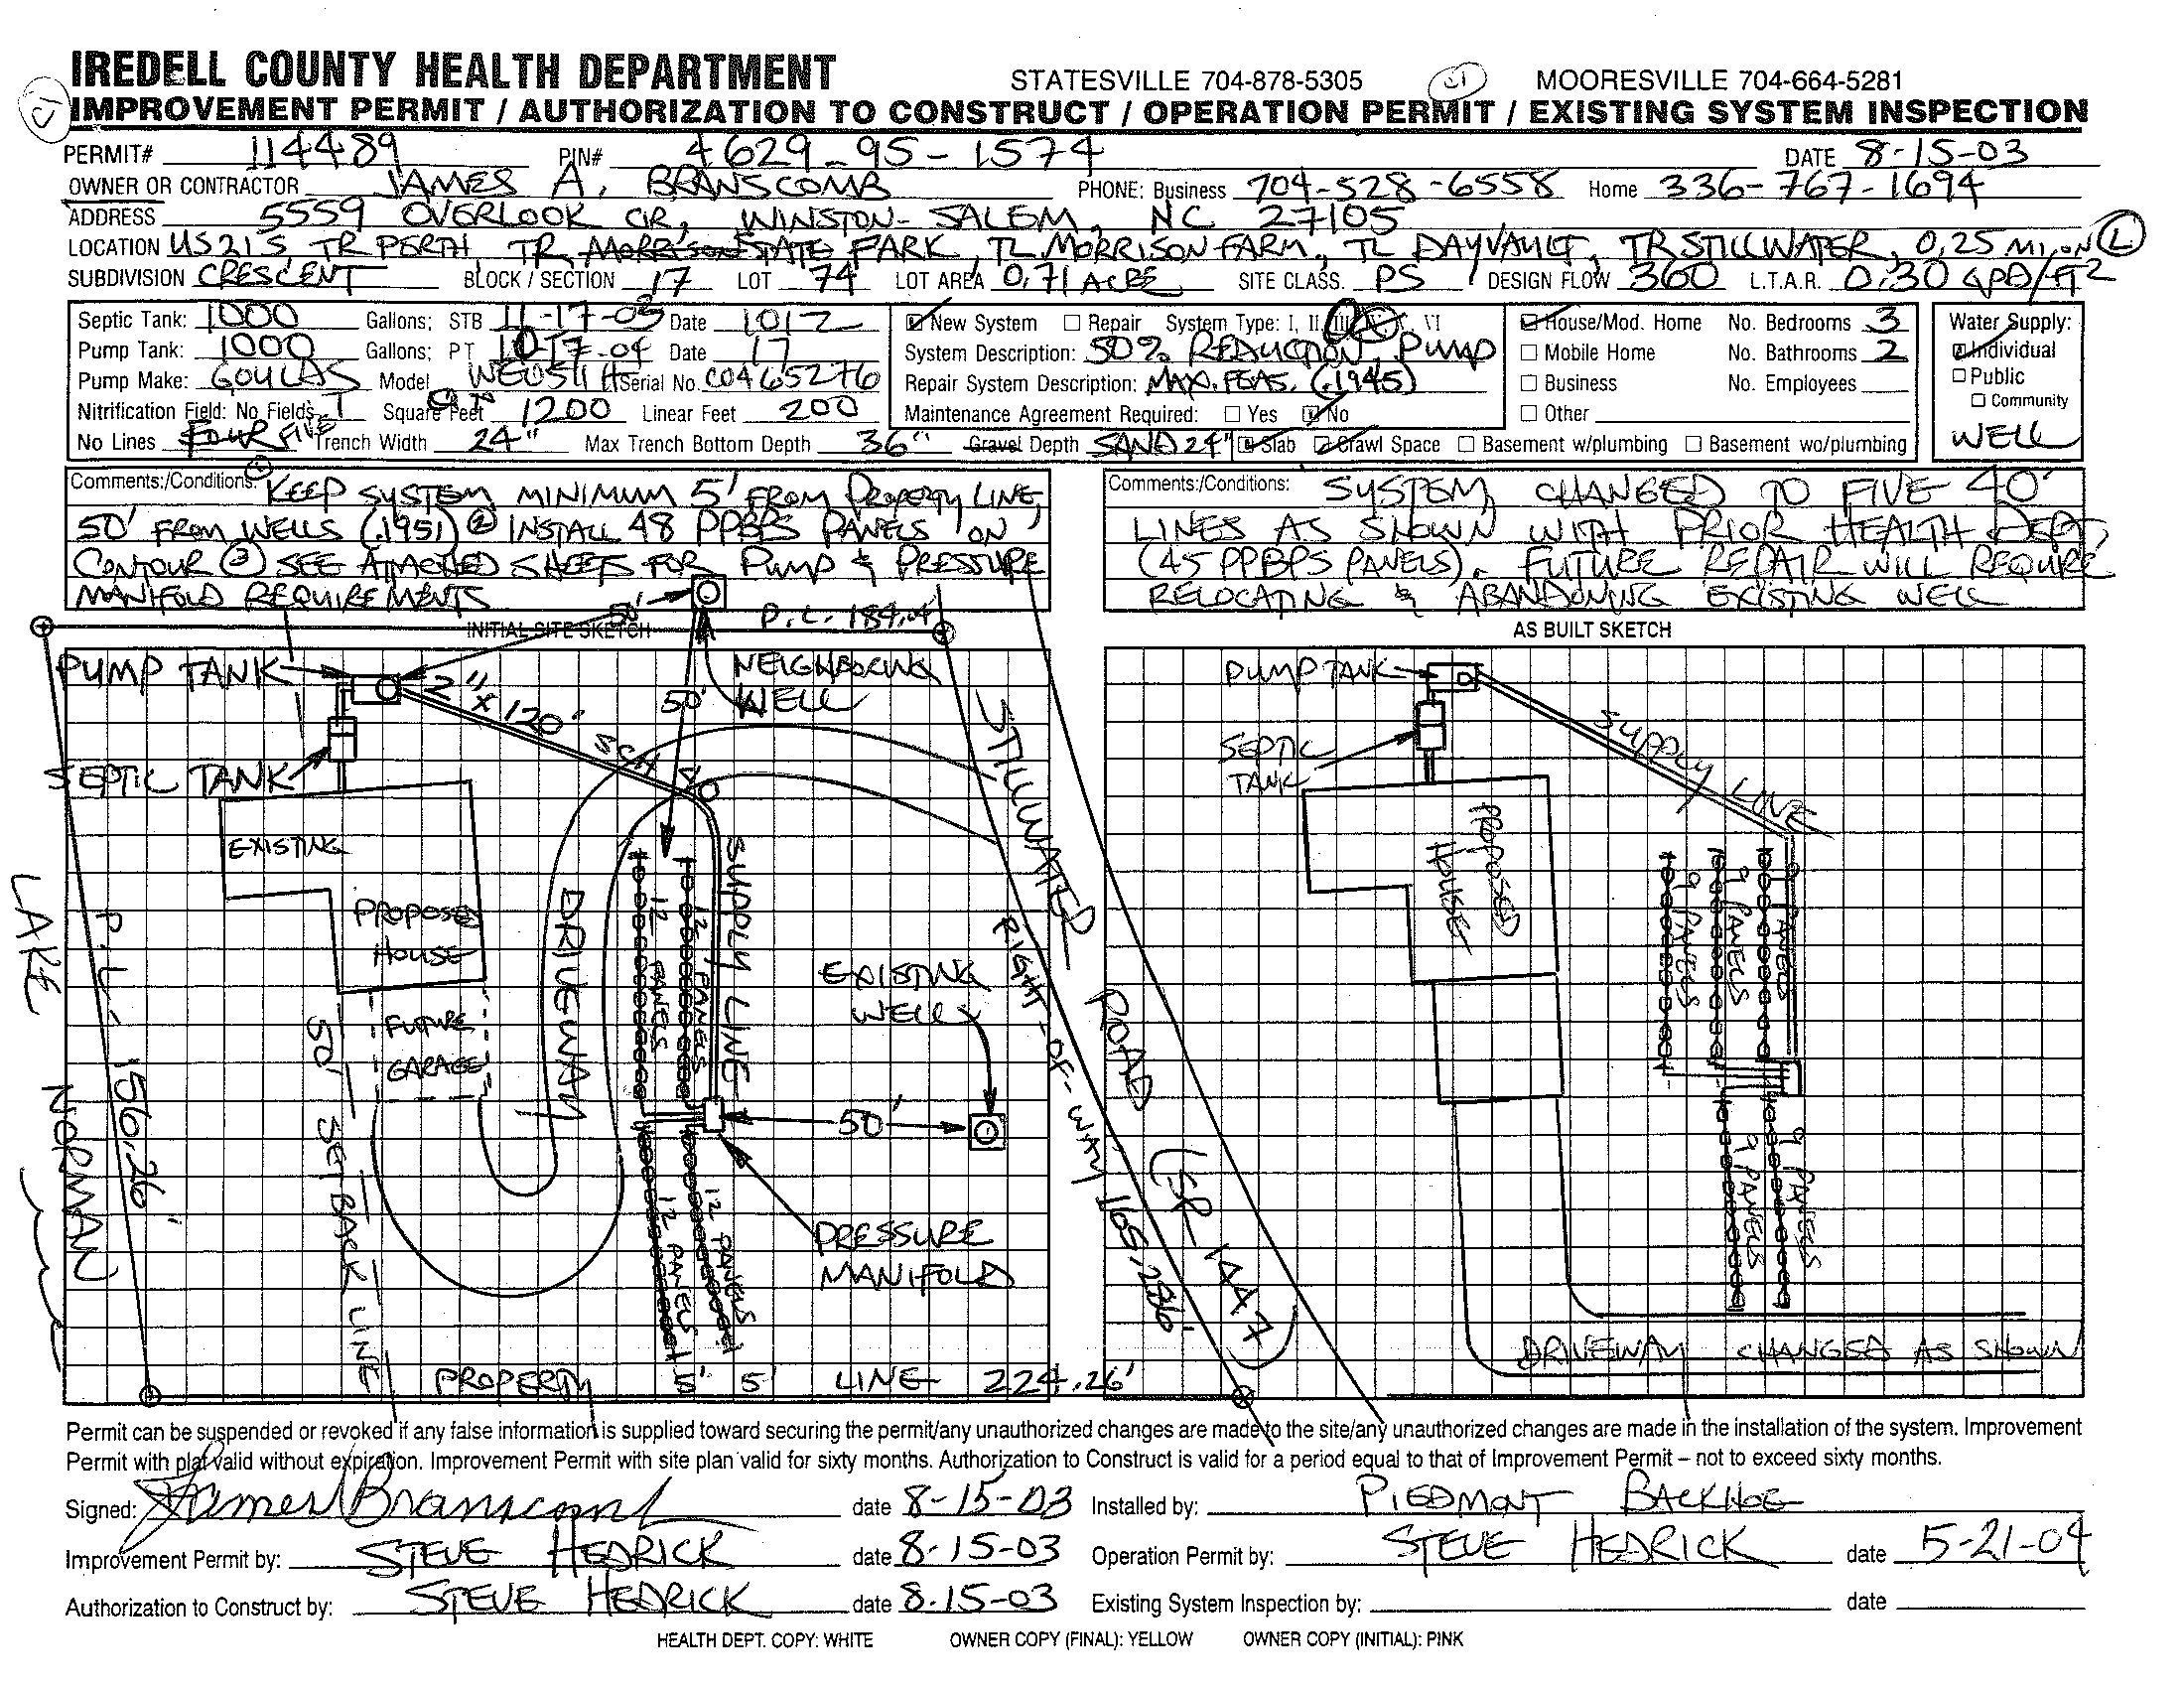 IREDELL COUNTY HEALTH DEPARTMENT STATESVILLE 704-878-5305 MOORESVILLE 704-664-5281
IMPROVEMENT PERMIT / AUTHORIZATION TO CONSTRUCT / OPERATION PERMIT / EXISTING SYSTEM INSPECTION
PERMIT# 114489 PIN# 4629-95-1574 DATE 8-15-03
OWNER OR CONTRACTOR JAMES A. BRANSCOMB PHONE: Business 704-528-6558 Home 336-767-1694
ADDRESS 5559 OVERLOOK CIR, WINSTON-SALEM, NC 27105
LOCATION US21S, TR PERTH, TR, MORRISON STATE PARK, TL MORRISON FARM, TL DAYVAULT, TR STILLWATER, 0.25 MI. ON L
SUBDIVISION CRESCENT BLOCK / SECTION 17 LOT 74 LOT AREA 0.71 ACRE SITE CLASS. PS DESIGN FLOW 360 L.T.A.R. 0.30 GPD/FT2
Septic Tank: 1000 Gallons; STB Date 1012
Pump Tank: 1000 Gallons; PT Date 17
Pump Make: GOULDS Model WE0511H Serial No. C0465276
Nitrification Field: No Fields 1 Square Feet 1200 Linear Feet 200
No Lines FOUR FIVE Trench Width 24" Max Trench Bottom Depth 36" Gravel Depth SAND 24"
New System Repair System Type: I, II, III, IV, V, VI
System Description: 50% REDUCTION, PUMP
Repair System Description: MAX. FEAS. (.1945)
Maintenance Agreement Required: Yes No
Slab Crawl Space Basement w/plumbing Basement wo/plumbing
House/Mod. Home No. Bedrooms 3
Mobile Home No. Bathrooms 2
Business No. Employees
Other
Water Supply:
Individual
Public
Community
WELL
Comments:/Conditions: ① KEEP SYSTEM MINIMUM 5' FROM PROPERTY LINE,
50' FROM WELLS (.1951) ② INSTALL 48 PPBPS PANELS ON
CONTOUR ③ SEE ATTACHED SHEETS FOR PUMP & PRESSURE
MANIFOLD REQUIREMENTS
Comments:/Conditions: SYSTEM CHANGED TO FIVE 40'
LINES AS SHOWN WITH PRIOR HEALTH DEPT,
(45 PPBPS PANELS). FUTURE REPAIR WILL REQUIRE
RELOCATING & ABANDONING EXISTING WELL
INITIAL SITE SKETCH
50'
P.L. 184.04'
PUMP TANK
2" x 120' SCH 40
NEIGHBORING
WELL
50'
SEPTIC TANK
EXISTING
PROPOSED
HOUSE
FUTURE
GARAGE
50' SETBACK LINE
DRIVEWAY
12 PANELS
12 PANELS
SUPPLY LINE
EXISTING
WELL
50'
PRESSURE
MANIFOLD
12 PANELS
12 PANELS
LAKE NORMAN
P.L. 156.26'
STILLWATER ROAD (SR 1447)
RIGHT-OF-WAY
PROPERTY 5' 5' LINE 224.26'
AS BUILT SKETCH
PUMP TANK
SEPTIC
TANK
SUPPLY LINE
PROPOSED
HOUSE
9 PANELS
9 PANELS
9 PANELS
9 PANELS
9 PANELS
DRIVEWAY CHANGED AS SHOWN
Permit can be suspended or revoked if any false information is supplied toward securing the permit/any unauthorized changes are made to the site/any unauthorized changes are made in the installation of the system. Improvement
Permit with plat valid without expiration. Improvement Permit with site plan valid for sixty months. Authorization to Construct is valid for a period equal to that of Improvement Permit – not to exceed sixty months.
Signed: James Branscomb date 8-15-03 Installed by: PIEDMONT BACKHOE
Improvement Permit by: STEVE HEDRICK date 8-15-03 Operation Permit by: STEVE HEDRICK date 5-21-04
Authorization to Construct by: STEVE HEDRICK date 8-15-03 Existing System Inspection by: date
HEALTH DEPT. COPY: WHITE OWNER COPY (FINAL): YELLOW OWNER COPY (INITIAL): PINK